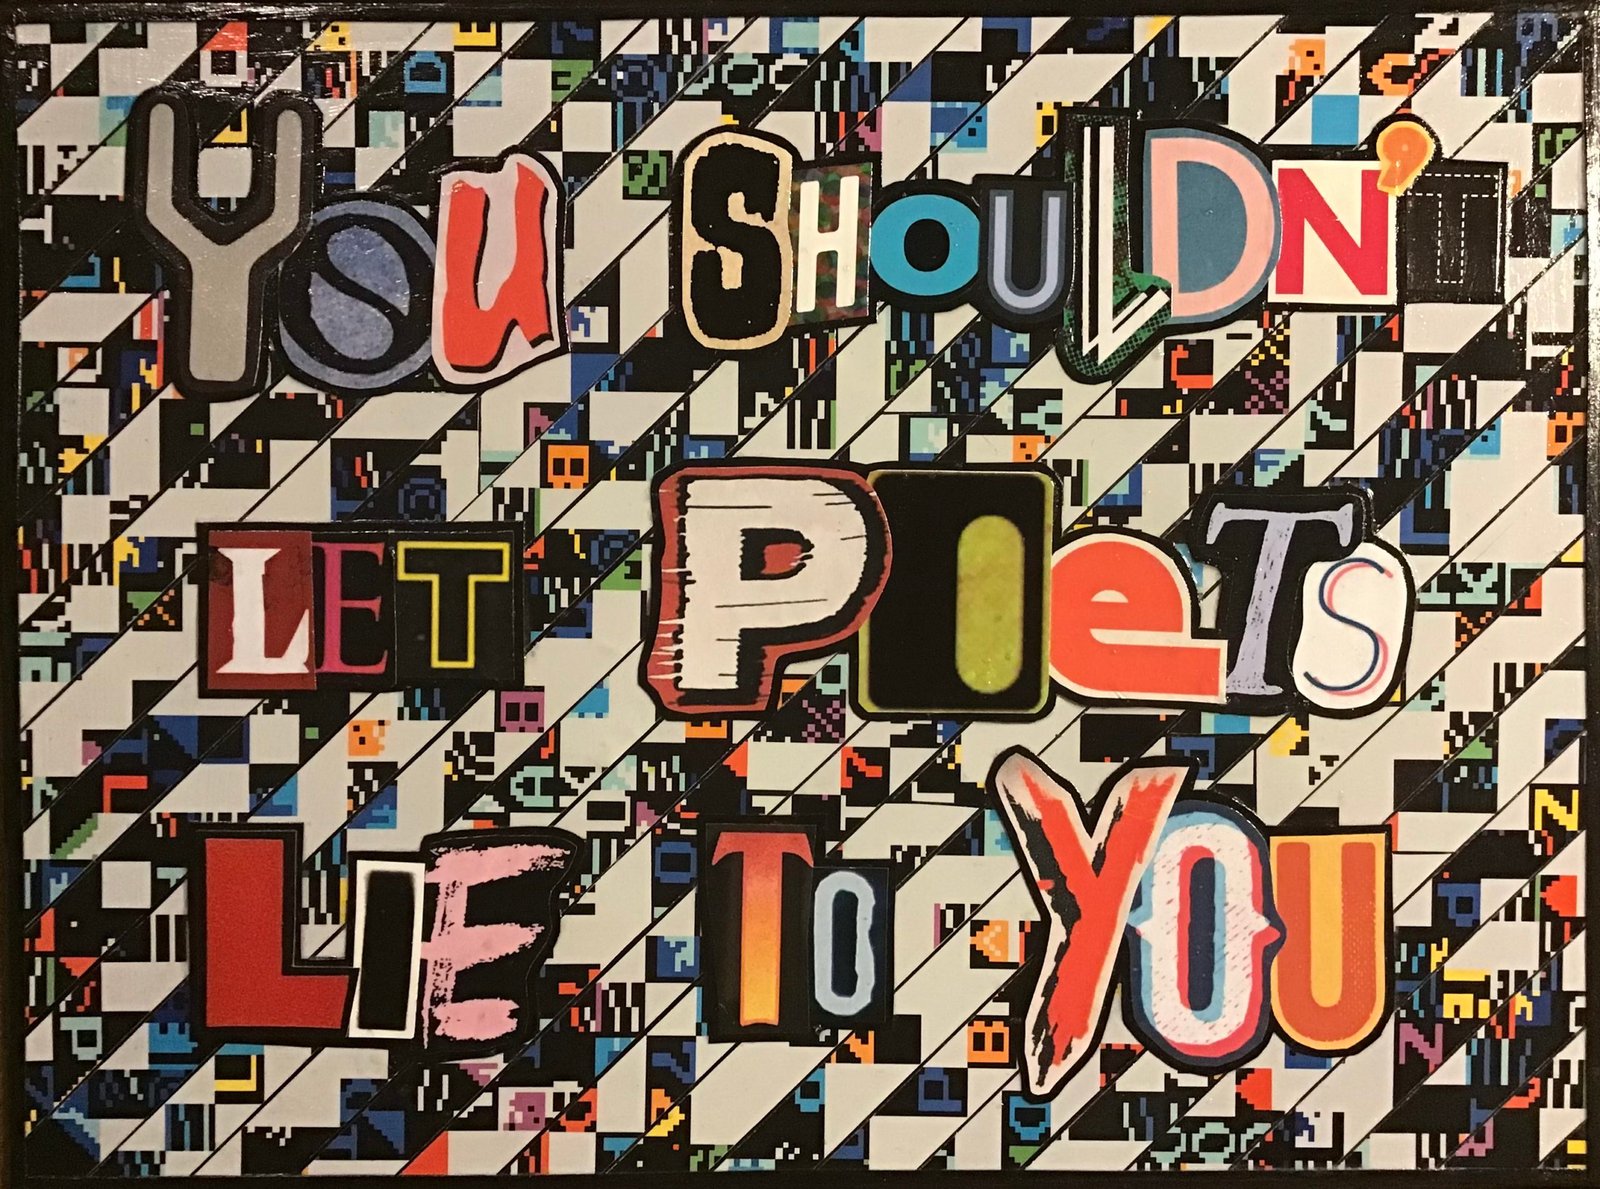 YOU SHOULDN'T
LET POETS
LIE TO YOU